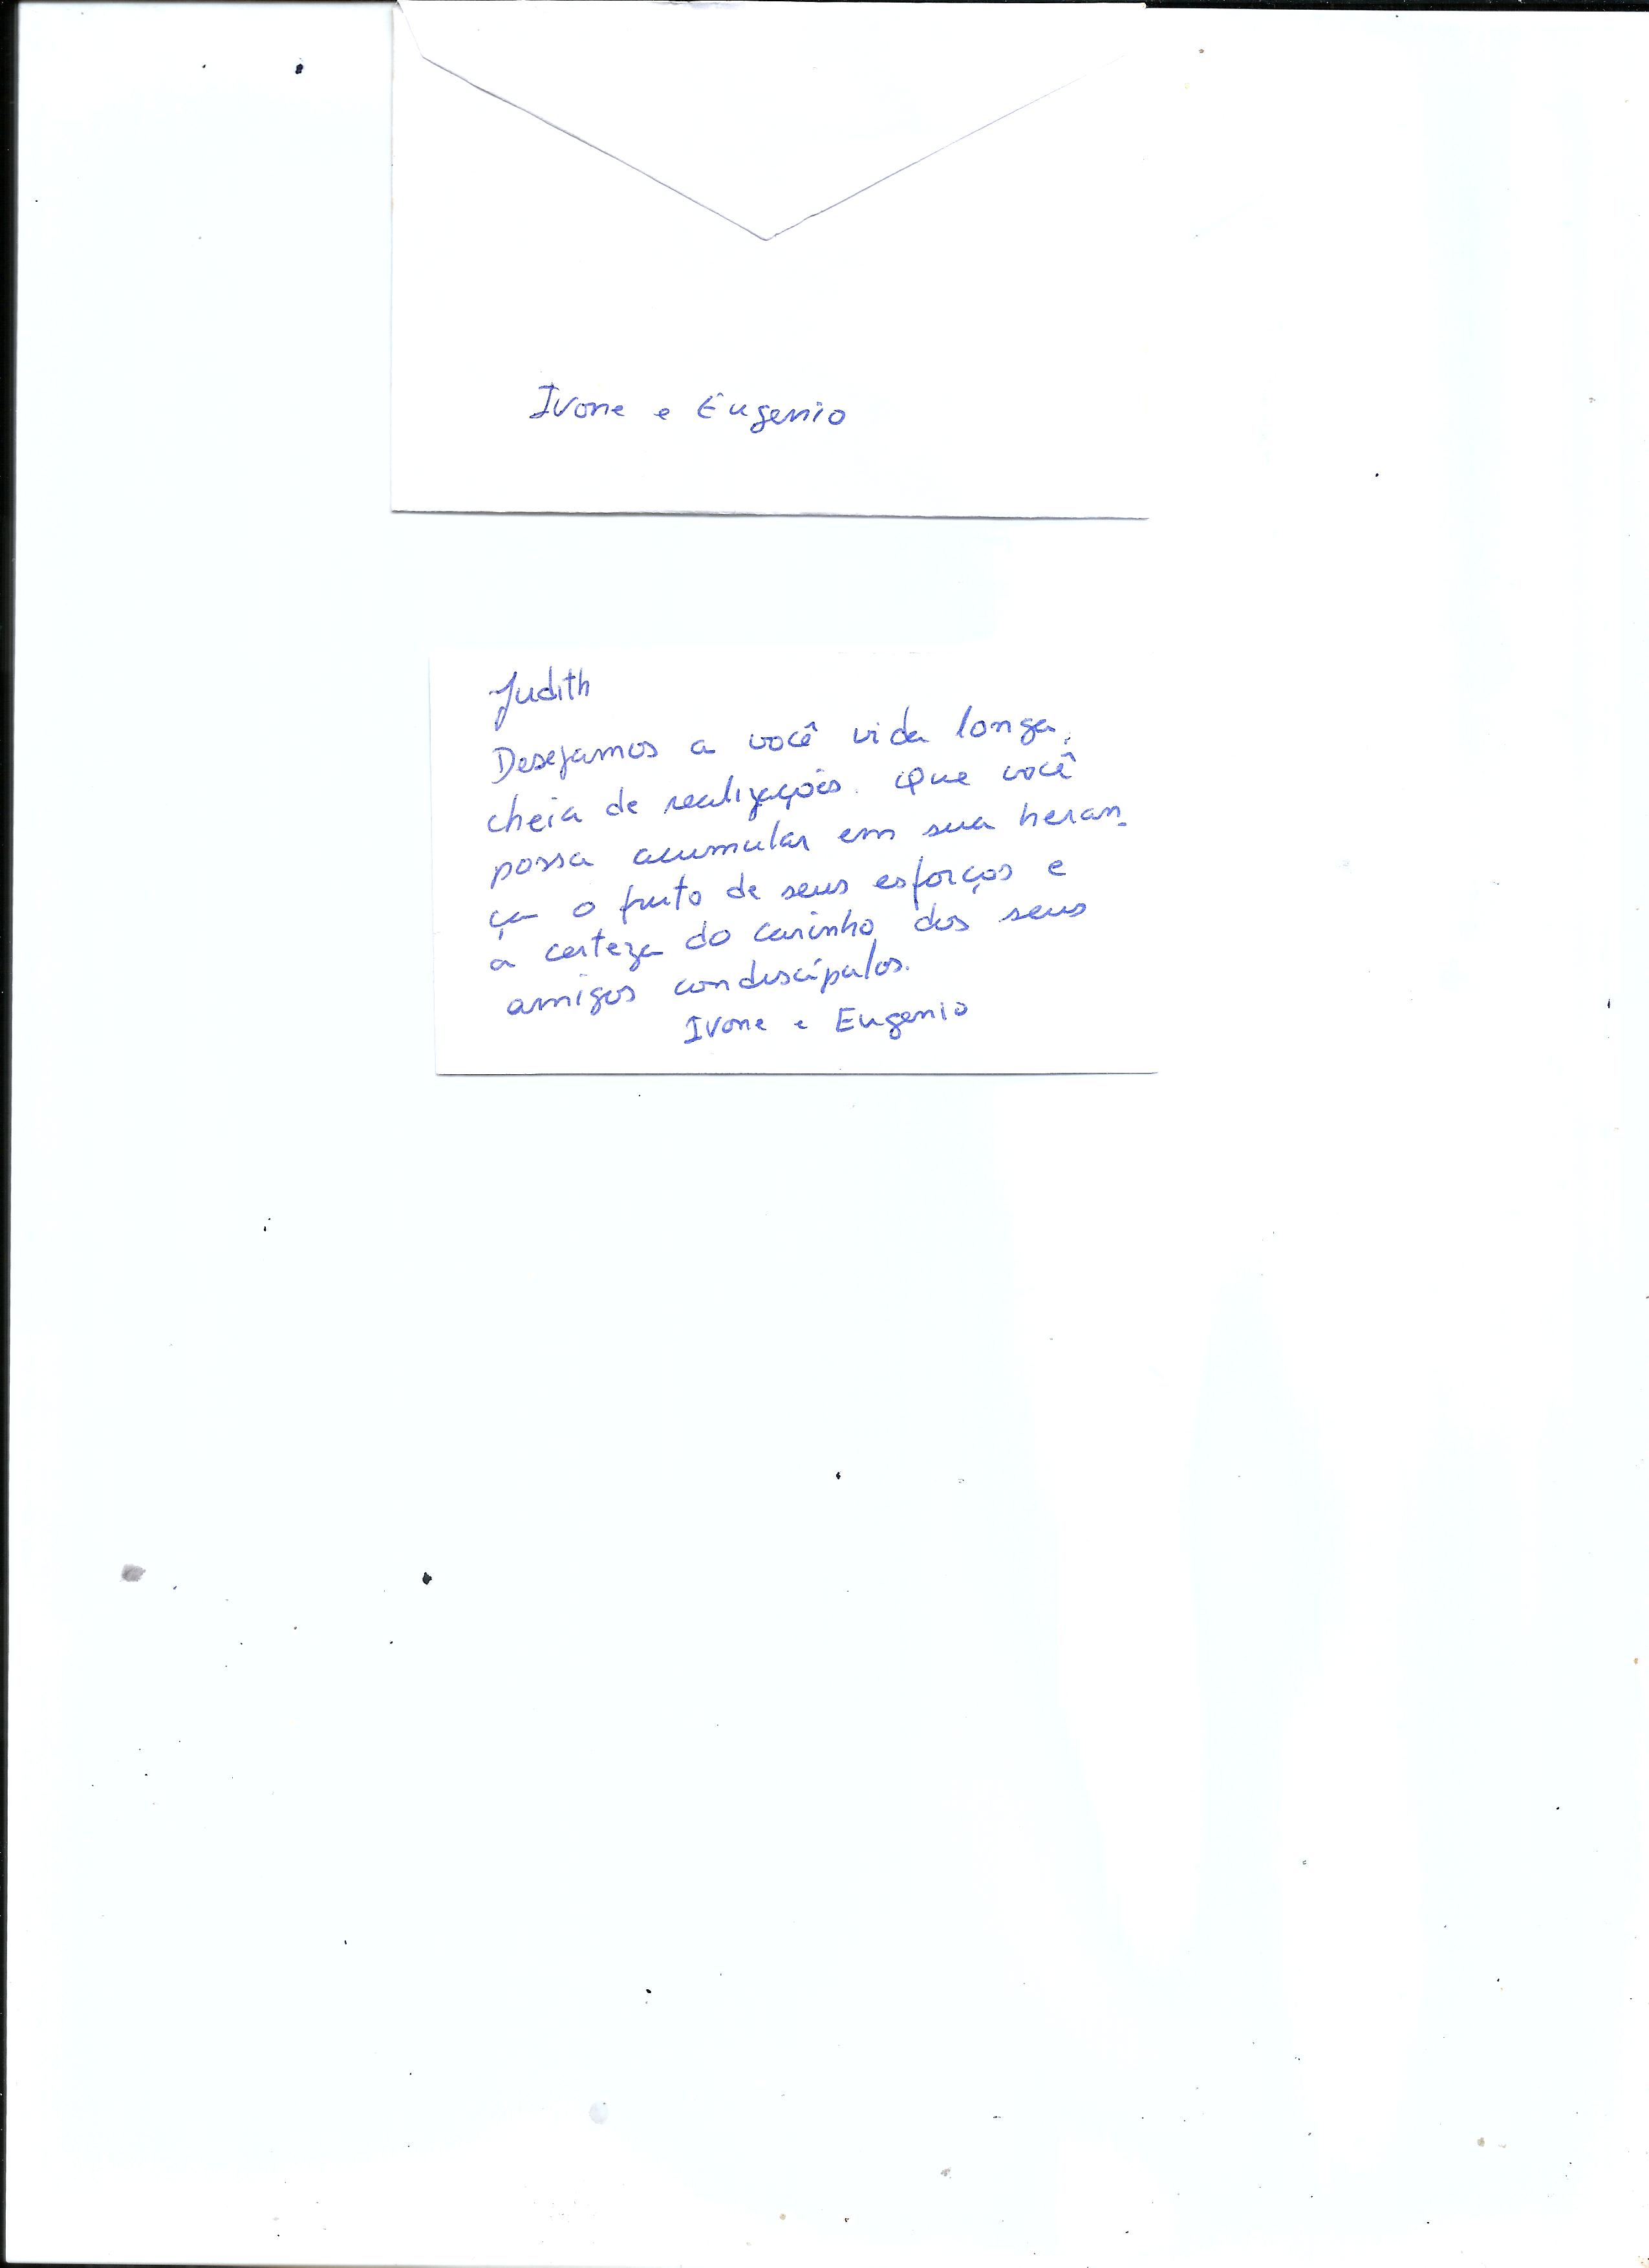 Ivone e Eugenio
Judith
Desejamos a você vida longa,
cheia de realizações. Que você
possa acumular em sua heran-
ça o fruto de seus esforços e
a certeza do carinho dos seus
amigos condiscípulos.
Ivone e Eugenio